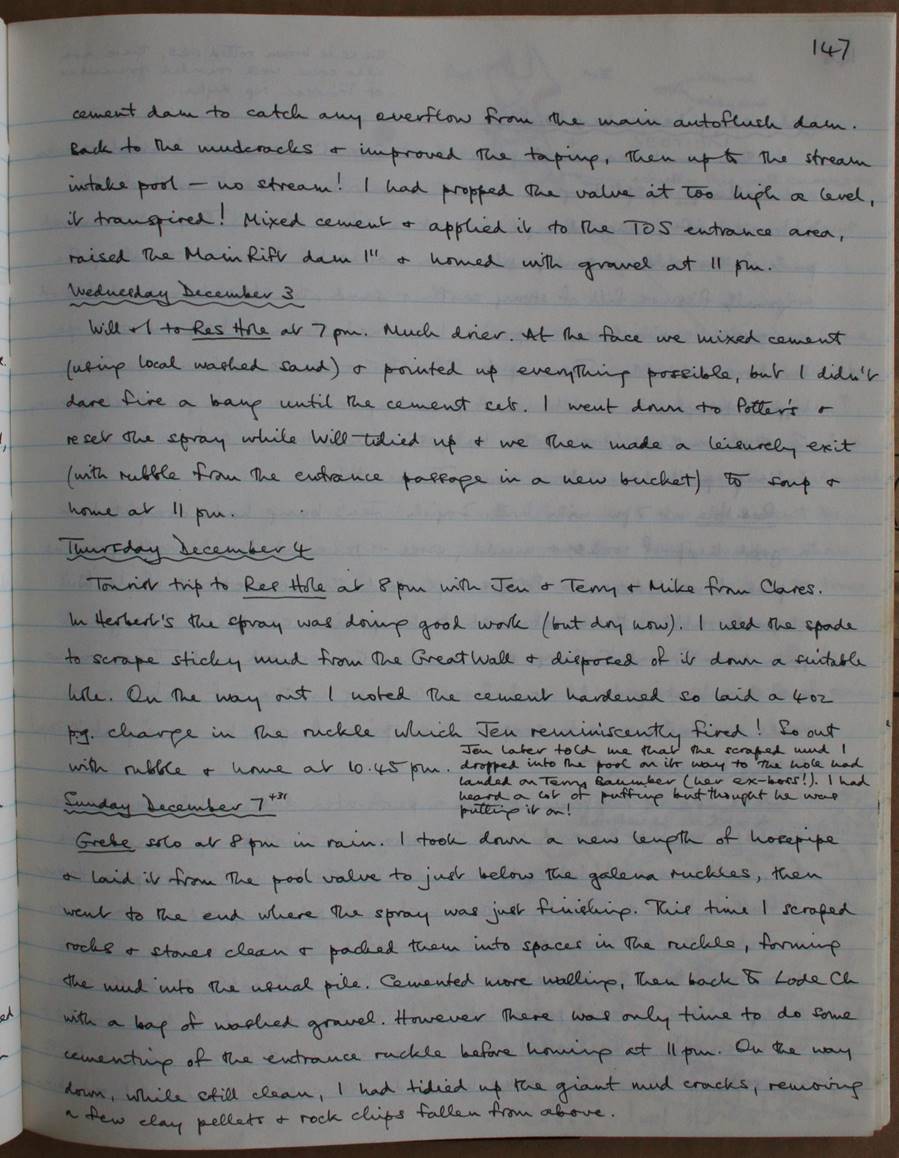 147
cement dam to catch any overflow from the main autoflush dam.
Back to the mudcracks & improved the taping, then up to the stream
intake pool - no stream! I had propped the valve at too high a level,
it transpired! Mixed cement & applied it to the TOS entrance area,
raised the Main Rift dam 1" & homed with gravel at 11 pm.
Wednesday December 3
Will & I to Res Hole at 7 pm. Much drier. At the face we mixed cement
(using local washed sand) & pointed up everything possible, but I didn't
dare fire a bang until the cement sets. I went down to Potter's &
reset the spray while Will tidied up & we then made a leisurely exit
(with rubble from the entrance passage in a new bucket) to soup &
home at 11 pm.
Thursday December 4
Tourist trip to Res Hole at 8 pm with Jen & Terry & Mike from Clares.
In Herbert's the spray was doing good work (but dry now). I used the spade
to scrape sticky mud from the Great Wall & disposed of it down a suitable
hole. On the way out I noted the cement hardened so laid a 4oz
p.g. charge in the ruckle which Jen reminiscently fired! So out
with rubble & home at 10.45 pm.
Jen later told me that the scraped mud I
dropped into the pool on its way to the hole had
landed on Terry (her ex-boss!). I had
heard a lot of puffing but thought he was
putting it on!
Sunday December 7
Grebe solo at 8 pm in rain. I took down a new length of hosepipe
& laid it from the pool valve to just below the galena ruckles, then
went to the end where the spray was just finishing. This time I scraped
rocks & stones clean & packed them into spaces in the ruckle, forming
the mud into the usual pile. Cemented more walling, then back to Lode Ch
with a bag of washed gravel. However there was only time to do some
cementing of the entrance ruckle before homing at 11 pm. On the way
down, while still clean, I had tidied up the giant mud cracks, removing
a few clay pellets & rock chips fallen from above.